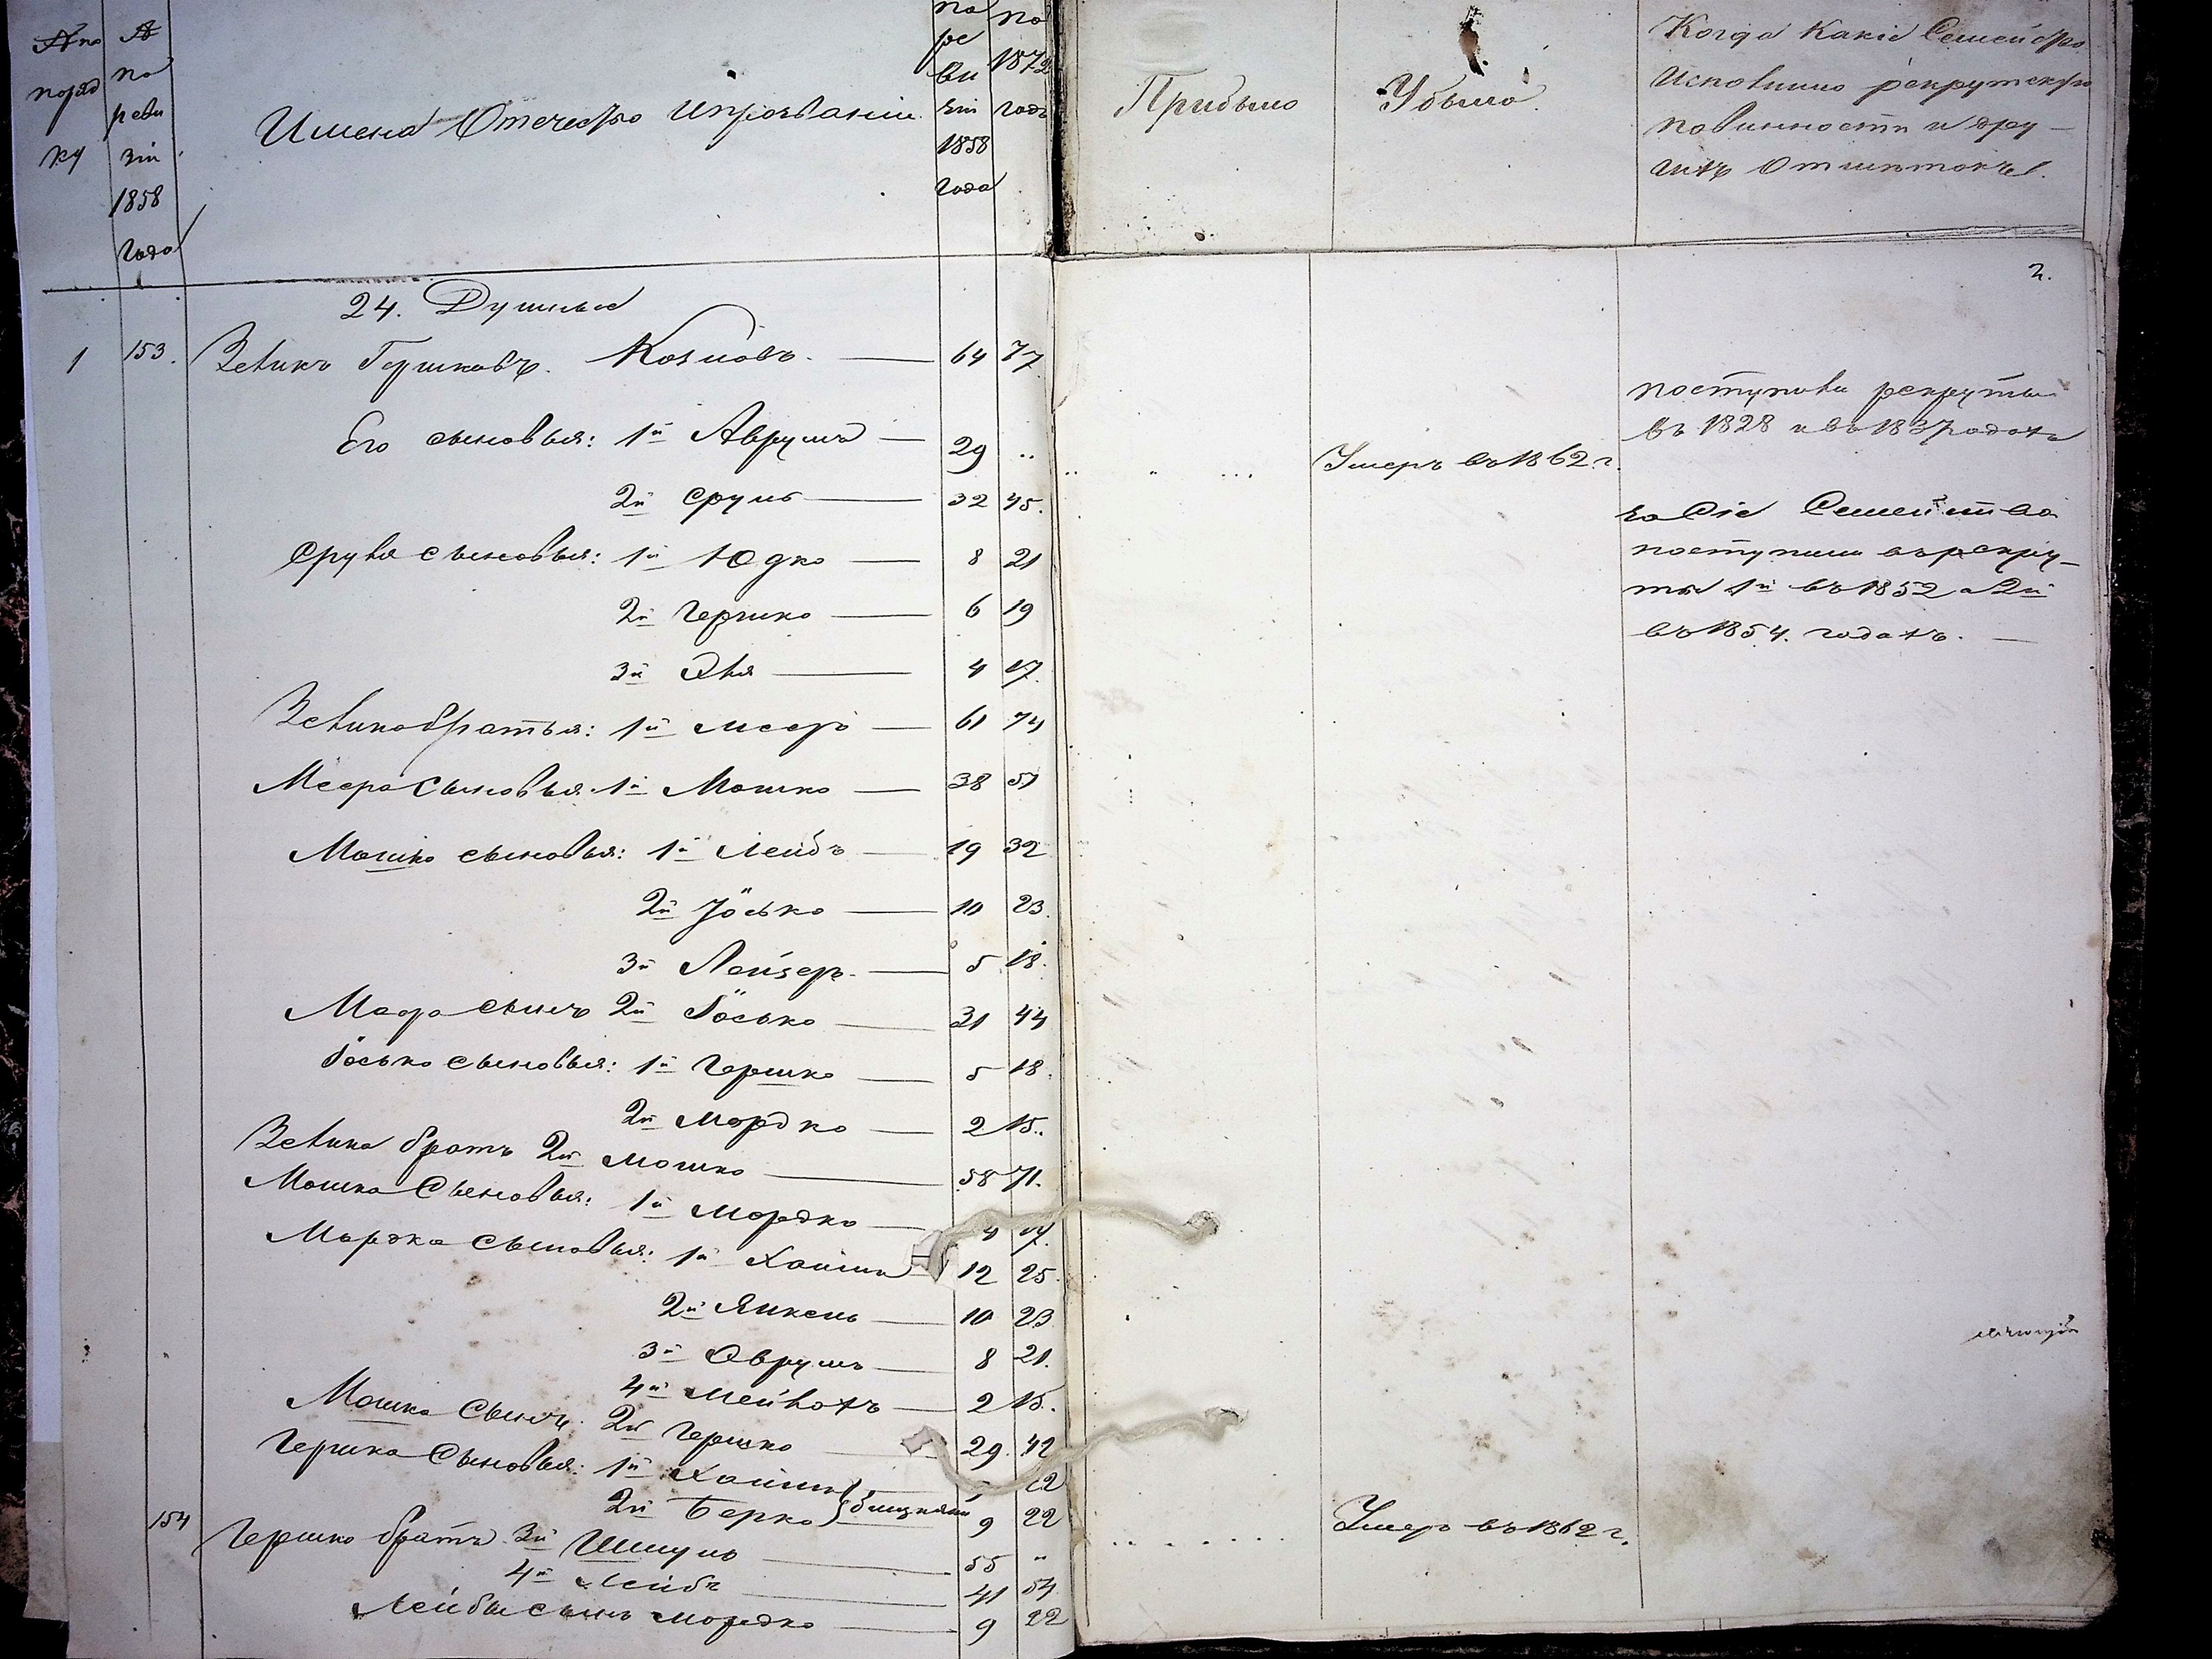 № по поряд ку
№ по реви зіи 1858 года
Имена Отечество и прозваніи
по ре ви зіи 1858 года
по 1872 годъ
Прибыло
Убыло.
Когда Какіе Семейство
исполнило рекрутскую
повинности и дру-
гихъ Отмѣтокъ.
2.
24. Душные
1 153. Зеликъ Гершковъ. Козловъ. 64 77
поступили рекруты
въ 1828 и въ 1837 годахъ
Его сыновья: 1й Аврумъ 29 ..
Умеръ въ 1862 г.
2й Сруль 32 45.
за Сіе Семейство
Сруля сыновья: 1й Юдко 8 21
поступили въ рекру-
ты 1й въ 1852 а 2й
2й Гершко 6 19
въ 1854. годахъ.
3й Эля 4 17.
Зелика братья: 1й Мееръ 61 74
Меера Сыновья 1й Мошко 38 51
Мошко сыновья: 1й Лейбъ 19 32
2й Іосько 10 23.
3й Лейзеръ. 5 18.
Меера сынъ 2й Іосько 31 44
Іосько сыновья: 1й Гершко 5 18.
2й Мордко 2 15..
Зелика братъ 2й Мошко 58 71.
Мошка Сыновья: 1й Мордко 4 17.
Мордка сыновья: 1й Хаимъ 12 25.
2й Янкель 10 23
3й Оврумъ 8 21.
4й Мейлохъ 2 15.
Мошка Сынъ: 2й Гершко 29. 42
Гершка Сыновья: 1й Хаимъ 22
2й Берко близнецы 9 22
154 Гершко братъ 3й Шмуль 55 "
Умеръ въ 1862 г.
4й Лейбъ 41 54
Лейбы сынъ Мордко 9 22